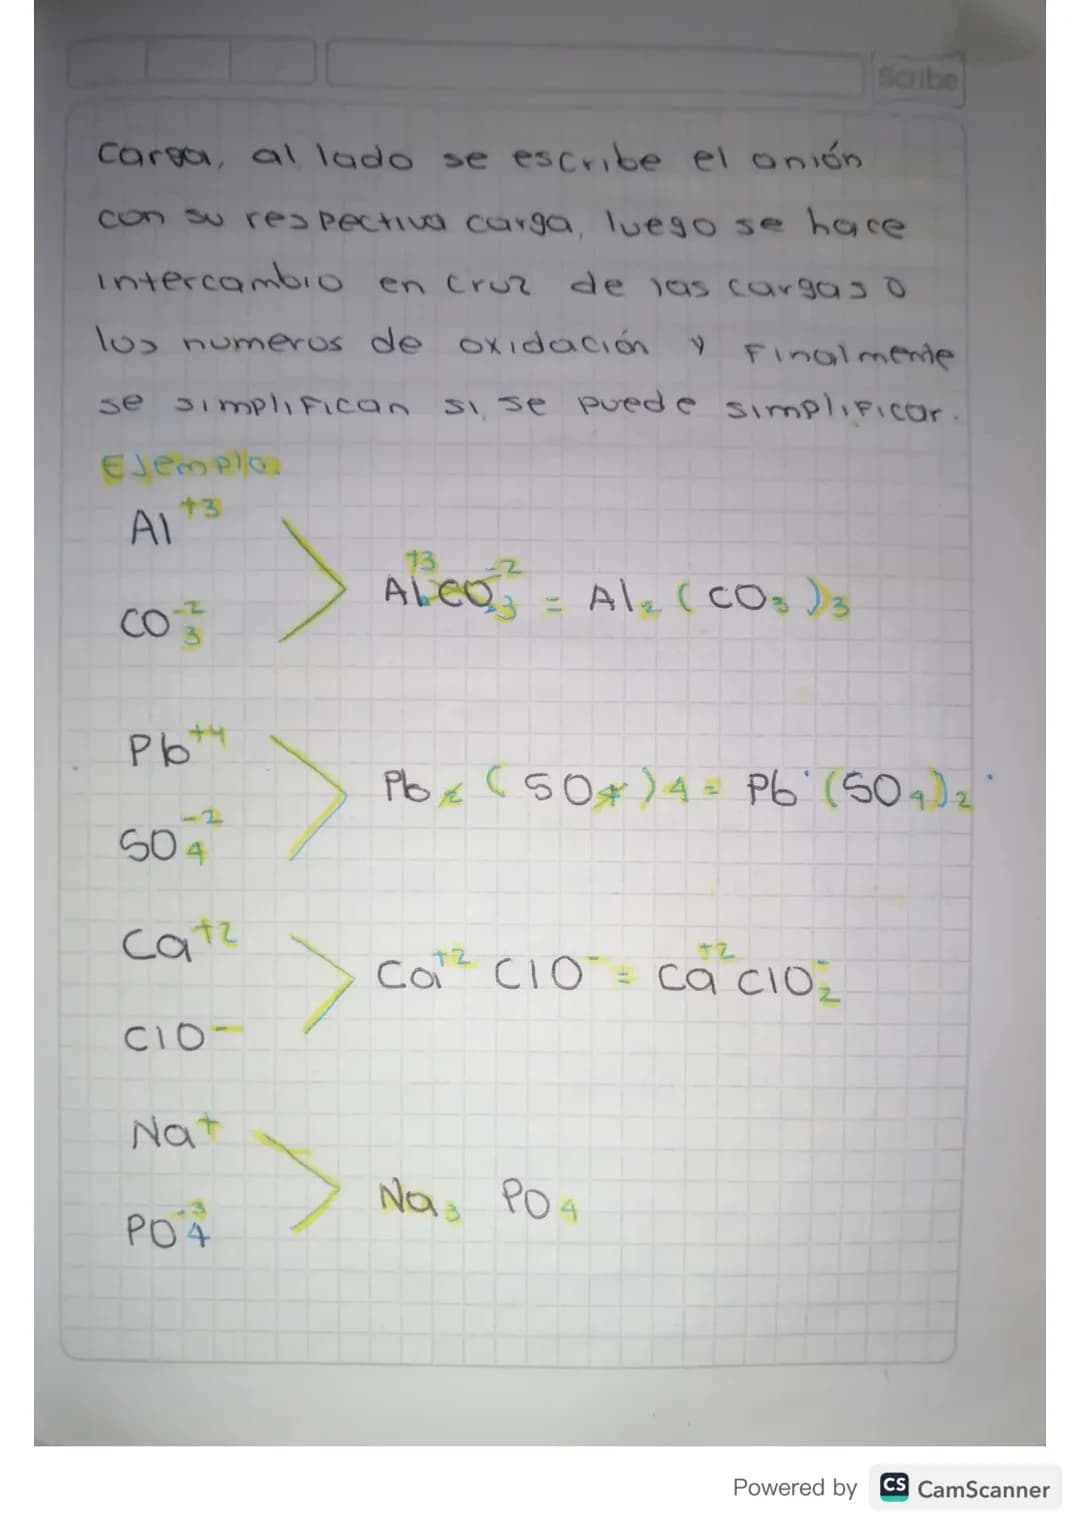 Scribe
carga, al lado se escribe el anión
con su respectiva carga, luego se hace
intercambio en cruz de las cargas o
los numeros de oxidación y Finalmente
se simplifican si, se puede simplificar.
Ejemplo
Al⁺³
Al⁺³CO₃⁻² = Al₂(CO₃)₃
CO₃⁻²
Pb⁺⁴
Pb₂(SO₄)₄ = Pb(SO₄)₂
SO₄⁻²
Ca⁺²
Ca⁺² ClO⁻ = Ca⁺² ClO₂⁻
ClO⁻
Na⁺
Na₃ PO₄
PO₄⁻³
Powered by CS CamScanner